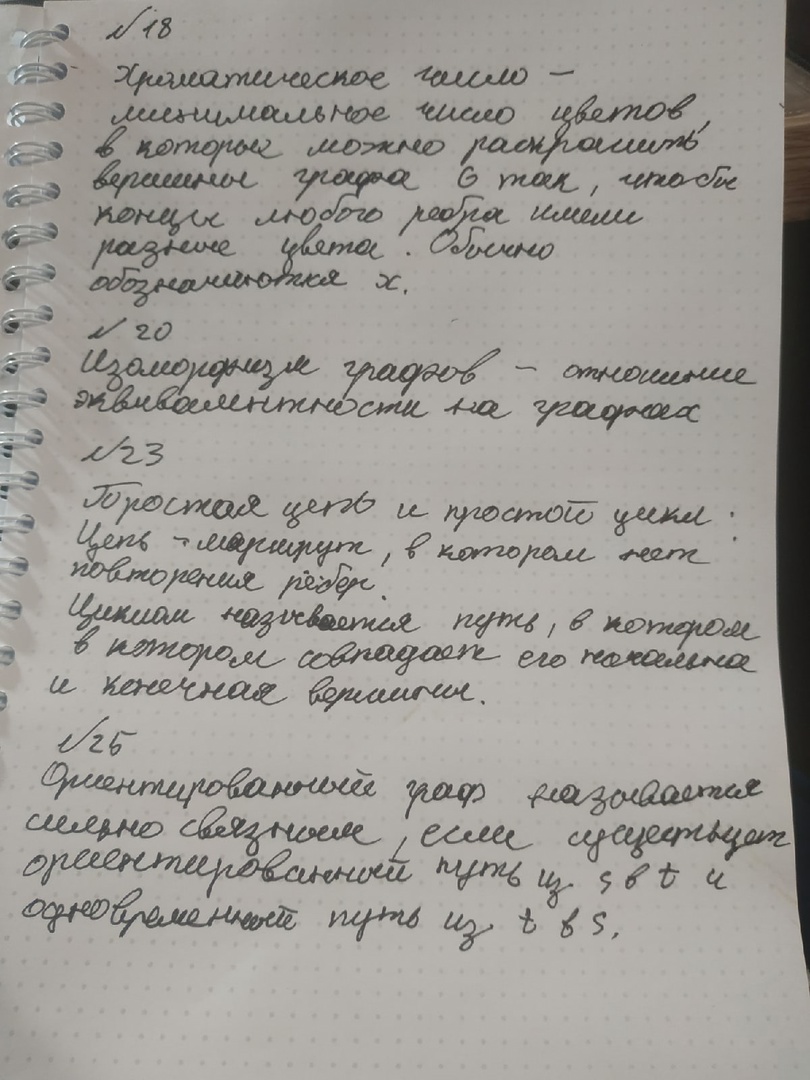 №18
Хроматическое число –
минимальное число цветов,
в которые можно раскрасить
вершины графа G так, чтобы
концы любого ребра имели
разные цвета. Обычно
обозначаются х.
№20
Изоморфизм графов – отношение
эквивалентности на графах
№23
Простая цепь и простой цикл.
Цепь – маршрут, в котором нет
повторения рёбер.
Циклом называется путь, в котором
в котором совпадает его начальна
и конечная вершины.
№25
Ориентированный граф называется
сильно связным, если существует
ориентированный путь из s в t и
одновременный путь из t в s.